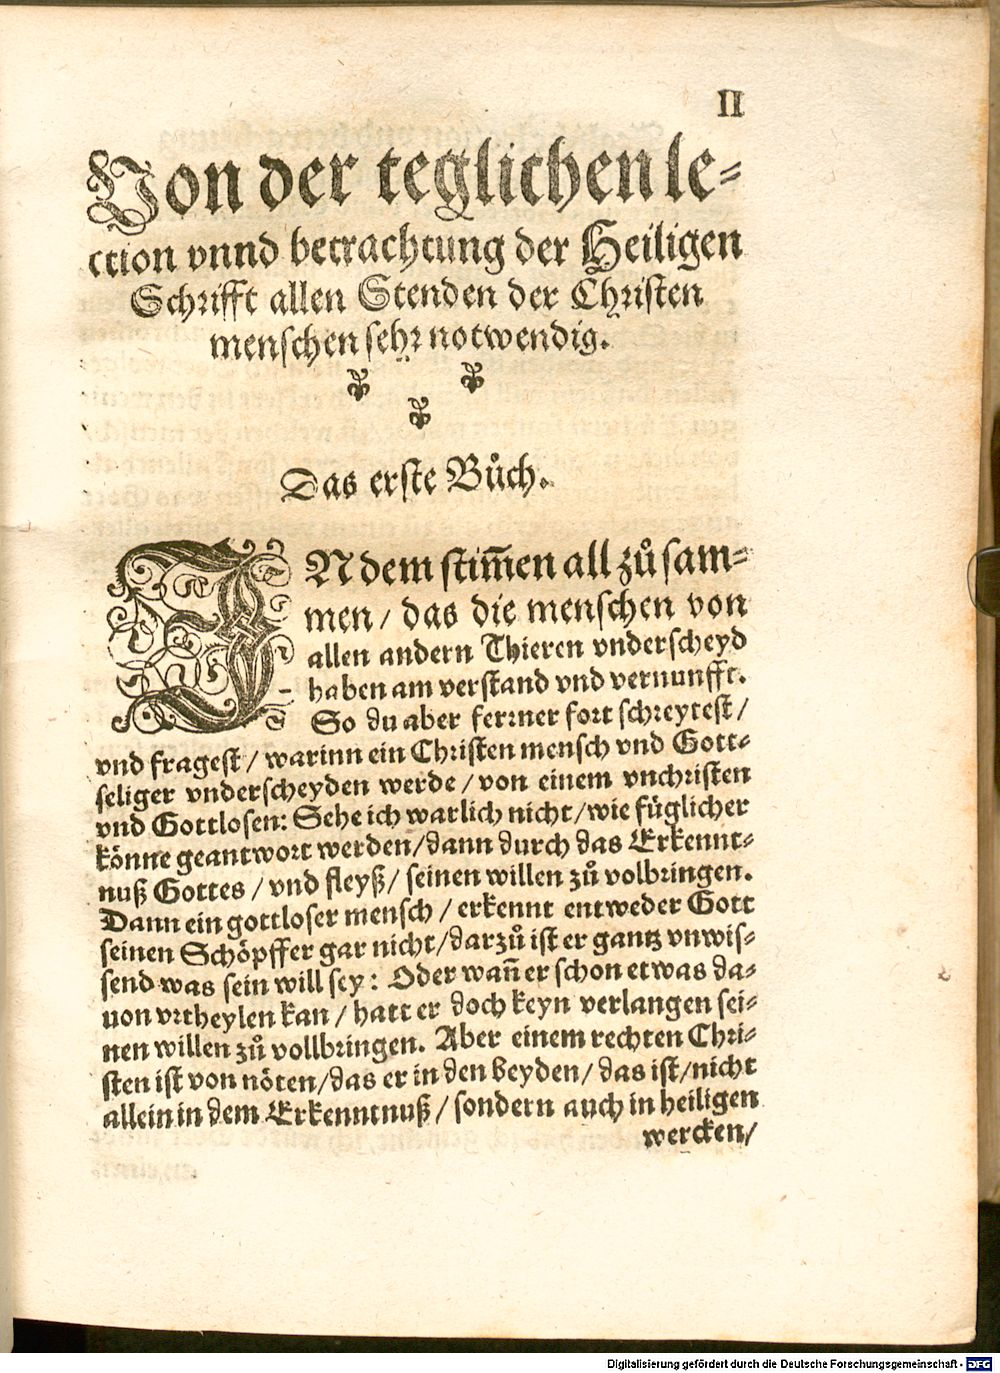 II
Von der teglichen le⸗
ction vnnd betrachtung der Heiligen
Schrifft allen Stenden der Christen
menschen sehr notwendig.
Das erste Bůch.
IN dem stim̃en all zů sam⸗
men / das die menschen von
allen andern Thieren vnderscheyd
haben am verstand vnd vernunfft.
So du aber ferrner fort schreytest /
vnd fragest / warinn ein Christen mensch vnd Gott⸗
seliger vnderscheyden werde / von einem vnchristen
vnd Gottlosen: Sehe ich warlich nicht / wie füglicher
könne geantwort werden / dann durch das Erkennt⸗
nuß Gottes / vnd fleyß / seinen willen zů volbringen.
Dann ein gottloser mensch / erkennt entweder Gott
seinen Schöpffer gar nicht / darzů ist er gantz vnwis⸗
send was sein will sey: Oder wañ er schon etwas da⸗
uon vrtheylen kan / hatt er doch keyn verlangen sei⸗
nen willen zů vollbringen. Aber einem rechten Chri⸗
sten ist von nöten / das er in den beyden / das ist / nicht
allein in dem Erkenntnuß / sondern auch in heiligen
wercken /
Digitalisierung gefördert durch die Deutsche Forschungsgemeinschaft - DFG